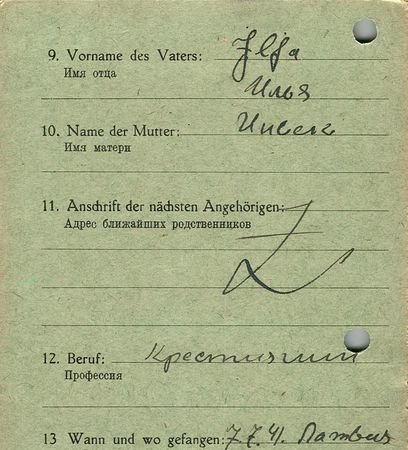 9. Vorname des Vaters: Ilja
Имя отца
Илья
10. Name der Mutter:
Имя матери
11. Anschrift der nächsten Angehörigen:
Адрес ближайших родственников
12. Beruf:
Профессия
13 Wann und wo gefangen: 7.7.41.